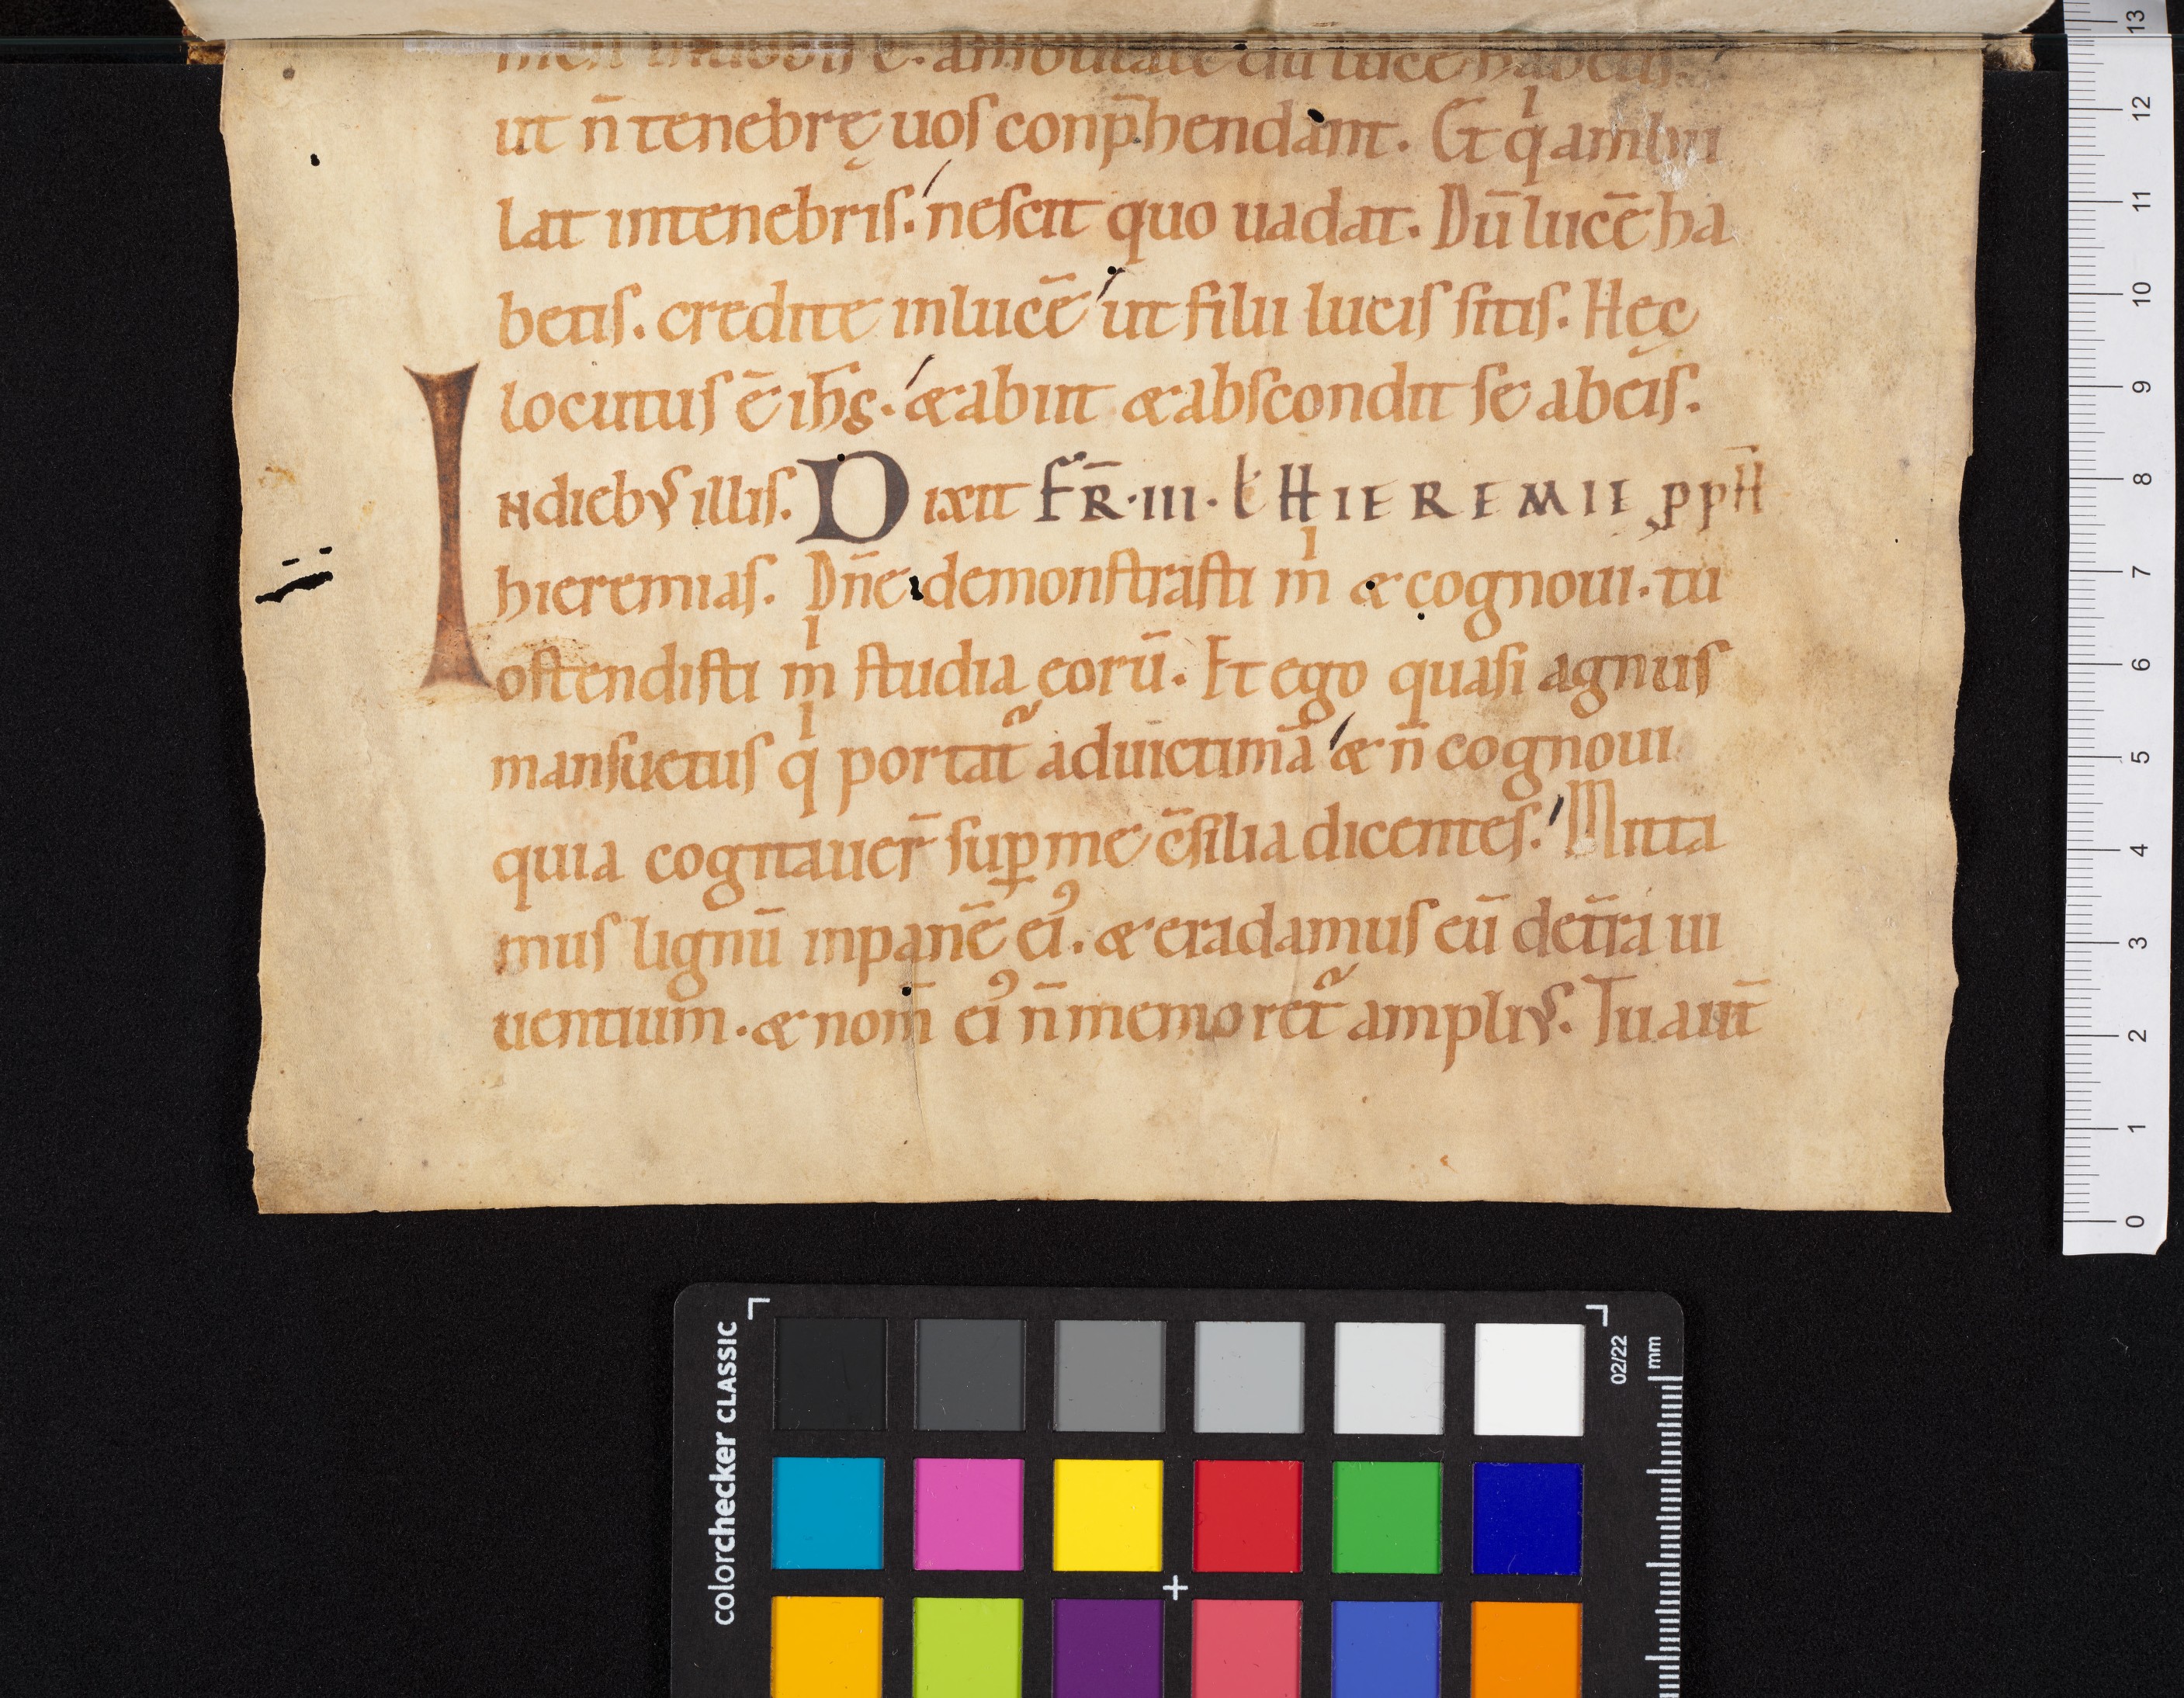 men in uobis ē. ambulate dū lucē habetis.
ut n̄ tenebrę uos conp̄hendant. Et qͥ ambu
lat intenebris. nescit quo uadat. Dū lucē ha
betis. credite inlucē ut filii lucis sitis. Hęc
locutus ē ih̄s. & abiit & abscondit se abeis.
Indiebꝰ illis. Dixit FR̄. III. ł HIEREMIE PPH̄
hieremias. Dn̄e demonstrasti mͥ & cognoui. tu
ostendisti mͥ studia eorū. Et ego quasi agnus
mansuetus qͥ portat᷑ aduictimā & n̄ cognoui
quia cogitauer̄ suꝑ me c̄silia dicentes. Mitta
mus lignū inpanē eiꝰ. & eradamus eū det̄ra ui
uentium. & nom̄ eiꝰ n̄ memoret᷑ ampliꝰ. Tu aut̄
0 1 2 3 4 5 6 7 8 9 10 11 12 13
colorchecker CLASSIC
02/22
mm